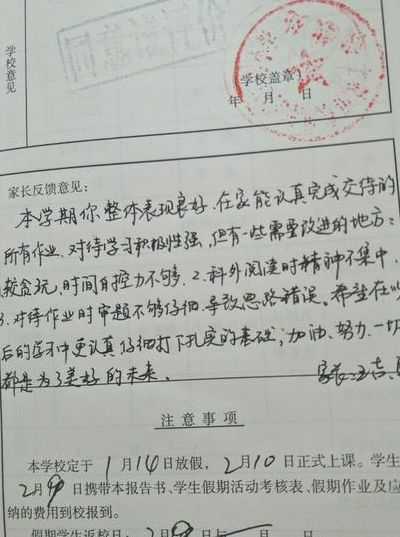 学校意见
学校盖章)
年 月 日
家长反馈意见:
本学期你整体表现良好,在家能认真完成交待的
所有作业,对待学习积极性强,但有一些需要改进的地方:
较贪玩,时间自控力不够,2.科外阅读时精神不集中,
3.对待作业时审题不够仔细,导致思路错误。希望在以
后的学习中更认真仔细打下扎实的基础,加油,努力,一切
都是为了美好的未来。
家长:王吉
注意事项
本学校定于1月14日放假,2月10日正式上课。学生
2月9日携带本报告书、学生假期活动考核表、假期作业及应
纳的费用到校报到。
假期学生返校日:2月9日与 月 日